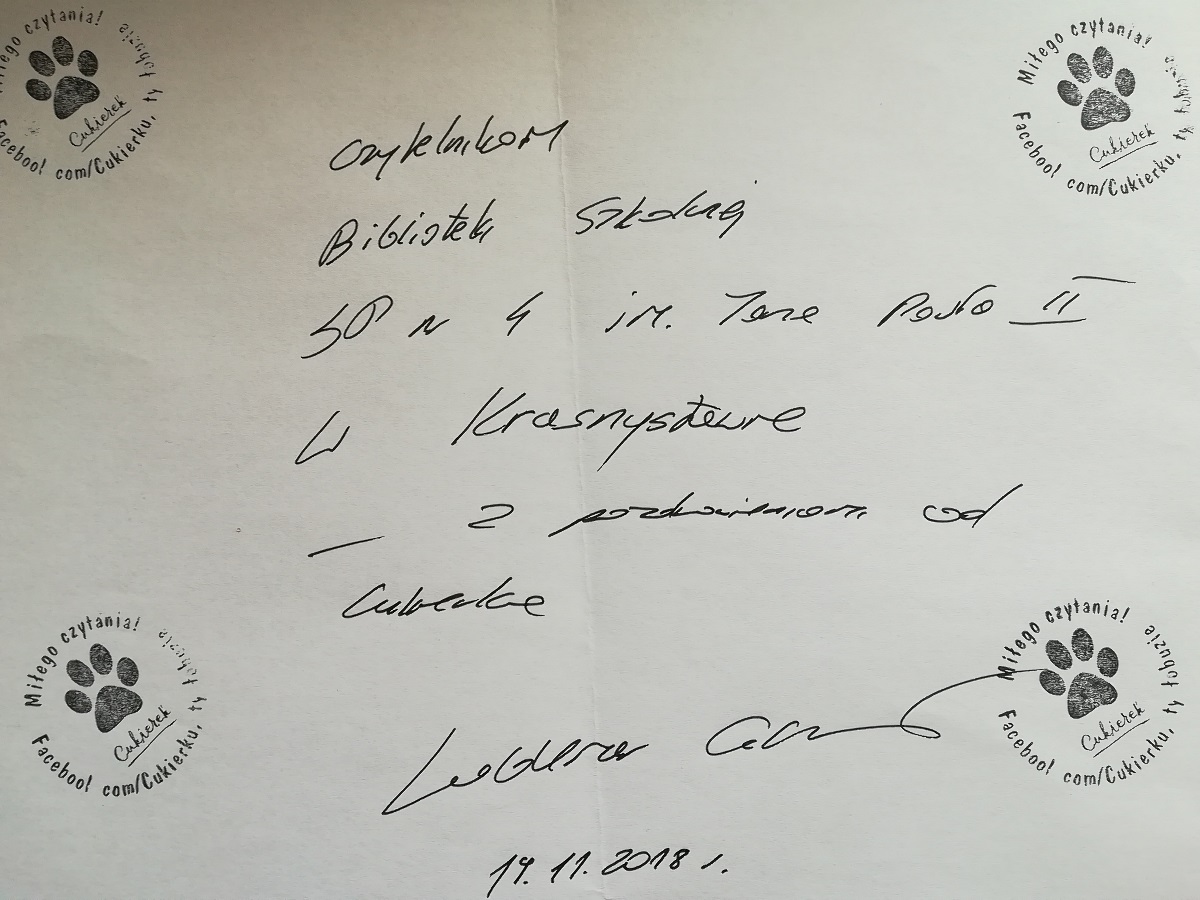 Miłego czytania!
Cukierek
Facebook.com/Cukierku, ty łobuzie
Miłego czytania!
Cukierek
Facebook.com/Cukierku, ty łobuzie
Czytelnikom
Biblioteki Szkolnej
SP nr 4 im. Jana Pawła II
w Krasnymstawie
– z pozdrowieniami od
Cukierka
Waldemar
14.11.2018 r.
Miłego czytania!
Cukierek
Facebook.com/Cukierku, ty łobuzie
Miłego czytania!
Cukierek
Facebook.com/Cukierku, ty łobuzie